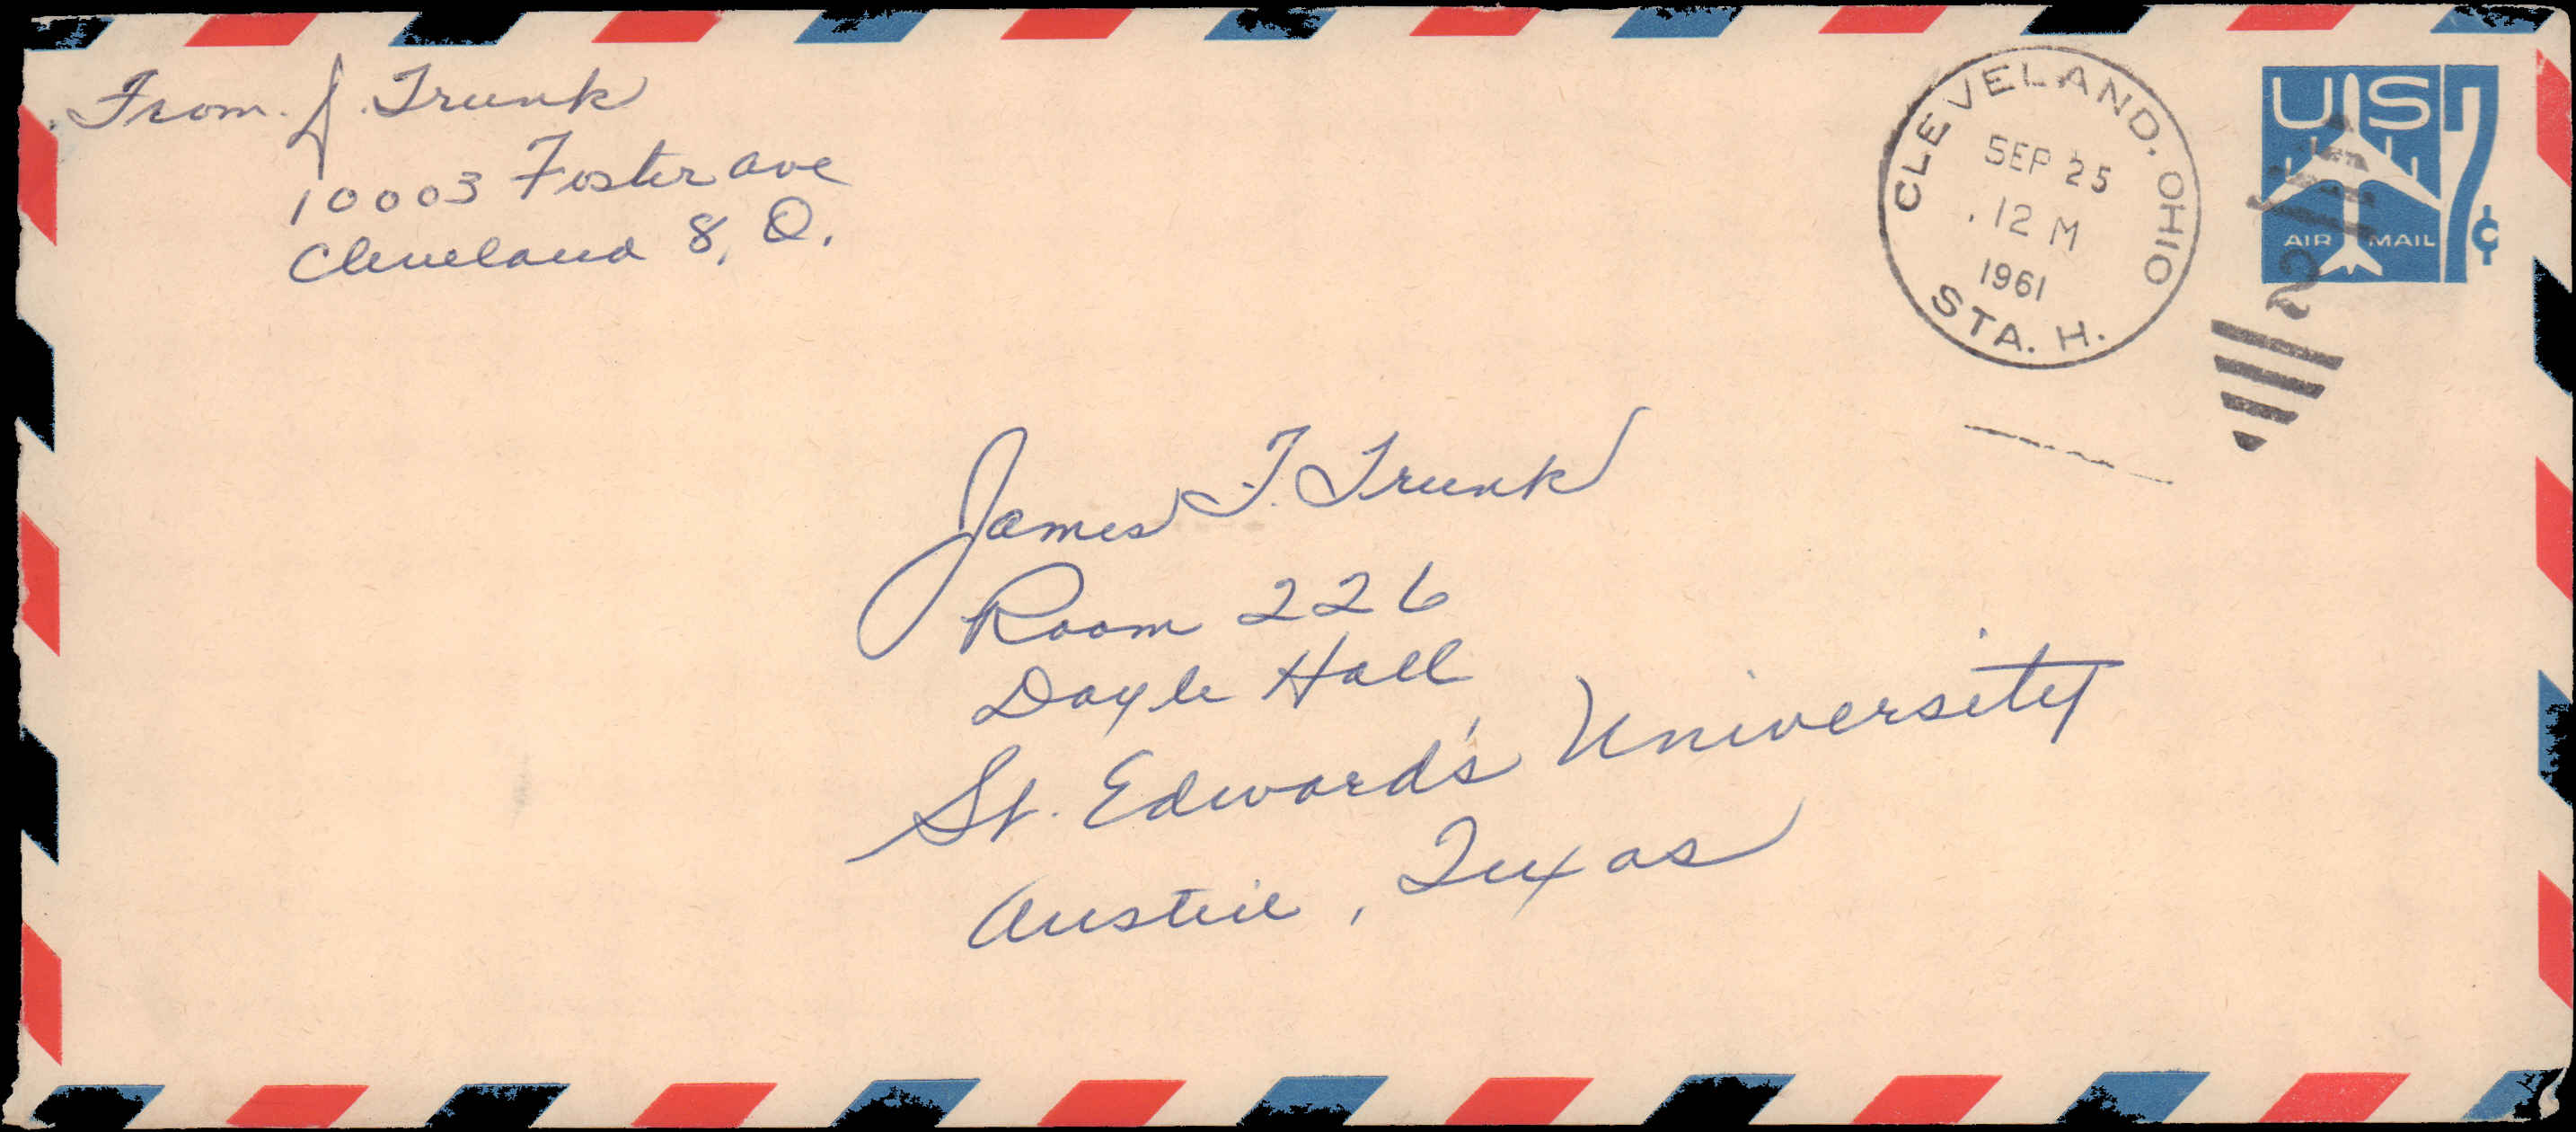 From J. Trunk
10003 Foster Ave
Cleveland 8, O.
CLEVELAND, OHIO
SEP 25
12 M
1961
STA. H.
US 7¢
AIR MAIL
James F. Trunk
Room 226
Doyle Hall
St. Edward's University
Austin, Texas